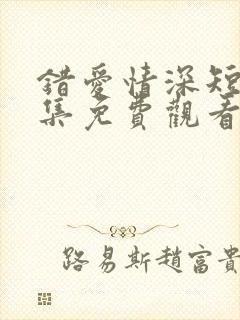 錯愛情深短
集免費觀看
路易斯趙富貴